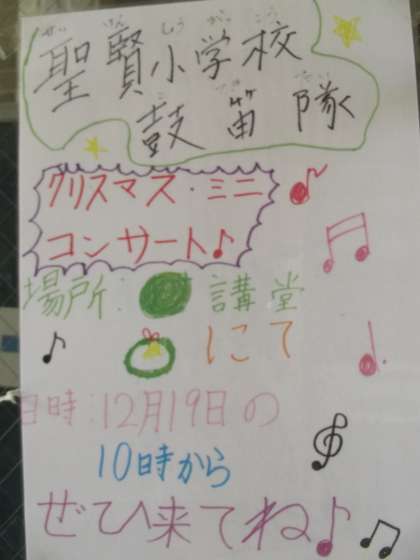 せいけんしょうがっこう
聖賢小学校
こてきたい
鼓笛隊
クリスマス・ミニ
コンサート♪
場所:講堂
にて
日時:12月19日の
10時から
ぜひ来てね♪